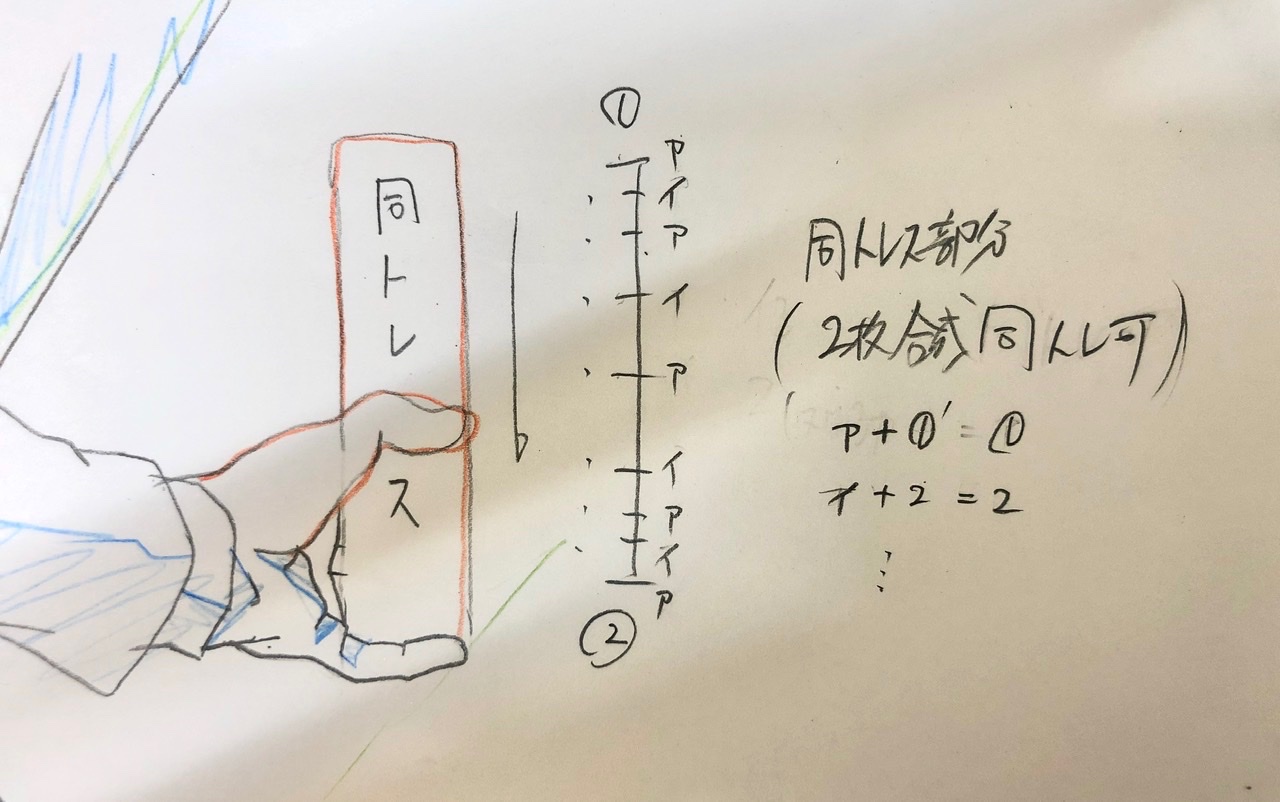 同トレス
①
ア
イ
ア
イ
ア
イ
ア
イ
ア
②
同トレス部分
(2枚合成同トレ可)
ア+①'=①
イ+2=2
⋮